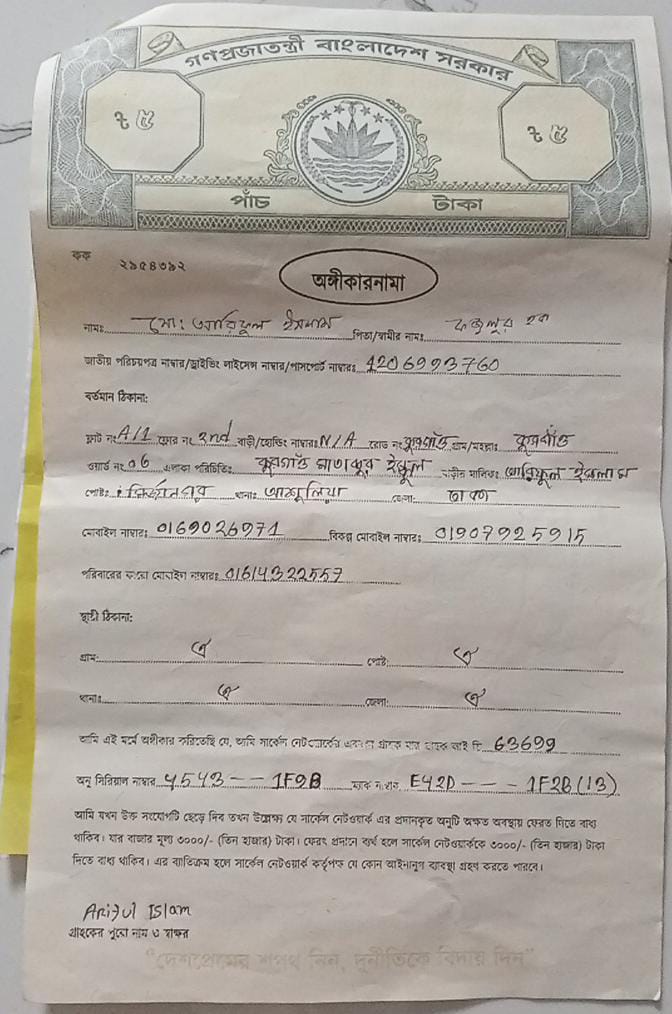 গণপ্রজাতন্ত্রী বাংলাদেশ সরকার
৳ ৫ ৳ ৫
পাঁচ টাকা
কক ২৯৫৪৩৯২
অঙ্গীকারনামা
নামঃ মো: আরিফুল ইসলাম পিতা/স্বামীর নামঃ ফজলুর হক
জাতীয় পরিচয়পত্র নাম্বার/ড্রাইভিং লাইসেন্স নাম্বার/পাসপোর্ট নাম্বারঃ 4206993760
বর্তমান ঠিকানা:
ফ্লাট নং A/1 ফ্লোর নং 2nd বাড়ী/হোল্ডিং নাম্বারঃ N/A রোড নং কুরগাঁও গ্রাম/মহল্লাঃ কুরগাঁও
ওয়ার্ড নং 06 এলাকা পরিচিতিঃ কুরগাঁও স্কুল বাড়ীর মালিকঃ আরিফুল ইসলাম
পোষ্টঃ মির্জানগর থানাঃ আশুলিয়া জেলা: ঢাকা
মোবাইল নাম্বারঃ 0169026971 বিকল্প মোবাইল নাম্বারঃ 01907925915
পরিবারের কারো মোবাইল নাম্বারঃ 01614322557
স্থায়ী ঠিকানা:
গ্রাম: ঐ পোষ্ট: ঐ
থানাঃ ঐ জেলা: ঐ
আমি এই মর্মে অঙ্গীকার করিতেছি যে, আমি সার্কেল নেটওয়ার্কের একজন গ্রাহক যার গ্রাহক আই ডি 63699
অনু সিরিয়াল নাম্বার 4543 -- 1F9B ম্যাক নাম্বার E42D - - - 1F2B (13)
আমি যখন উক্ত সংযোগটি ছেড়ে দিব তখন উল্লেক্ষ যে সার্কেল নেটওয়ার্ক এর প্রদানকৃত অনুটি অক্ষত অবস্থায় ফেরত দিতে বাধ্য
থাকিব। যার বাজার মূল্য ৩০০০/- (তিন হাজার) টাকা। ফেরৎ প্রদানে ব্যর্থ হলে সার্কেল নেটওয়ার্ককে ৩০০০/- (তিন হাজার) টাকা
দিতে বাধ্য থাকিব। এর ব্যতিক্রম হলে সার্কেল নেটওয়ার্ক কর্তৃপক্ষ যে কোন আইনানুগ ব্যবস্থা গ্রহণ করতে পারবে।
Ariful Islam
গ্রাহকের পুরো নাম ও স্বাক্ষর
"দেশপ্রেমের শপথ নিন, দুর্নীতিকে বিদায় দিন"